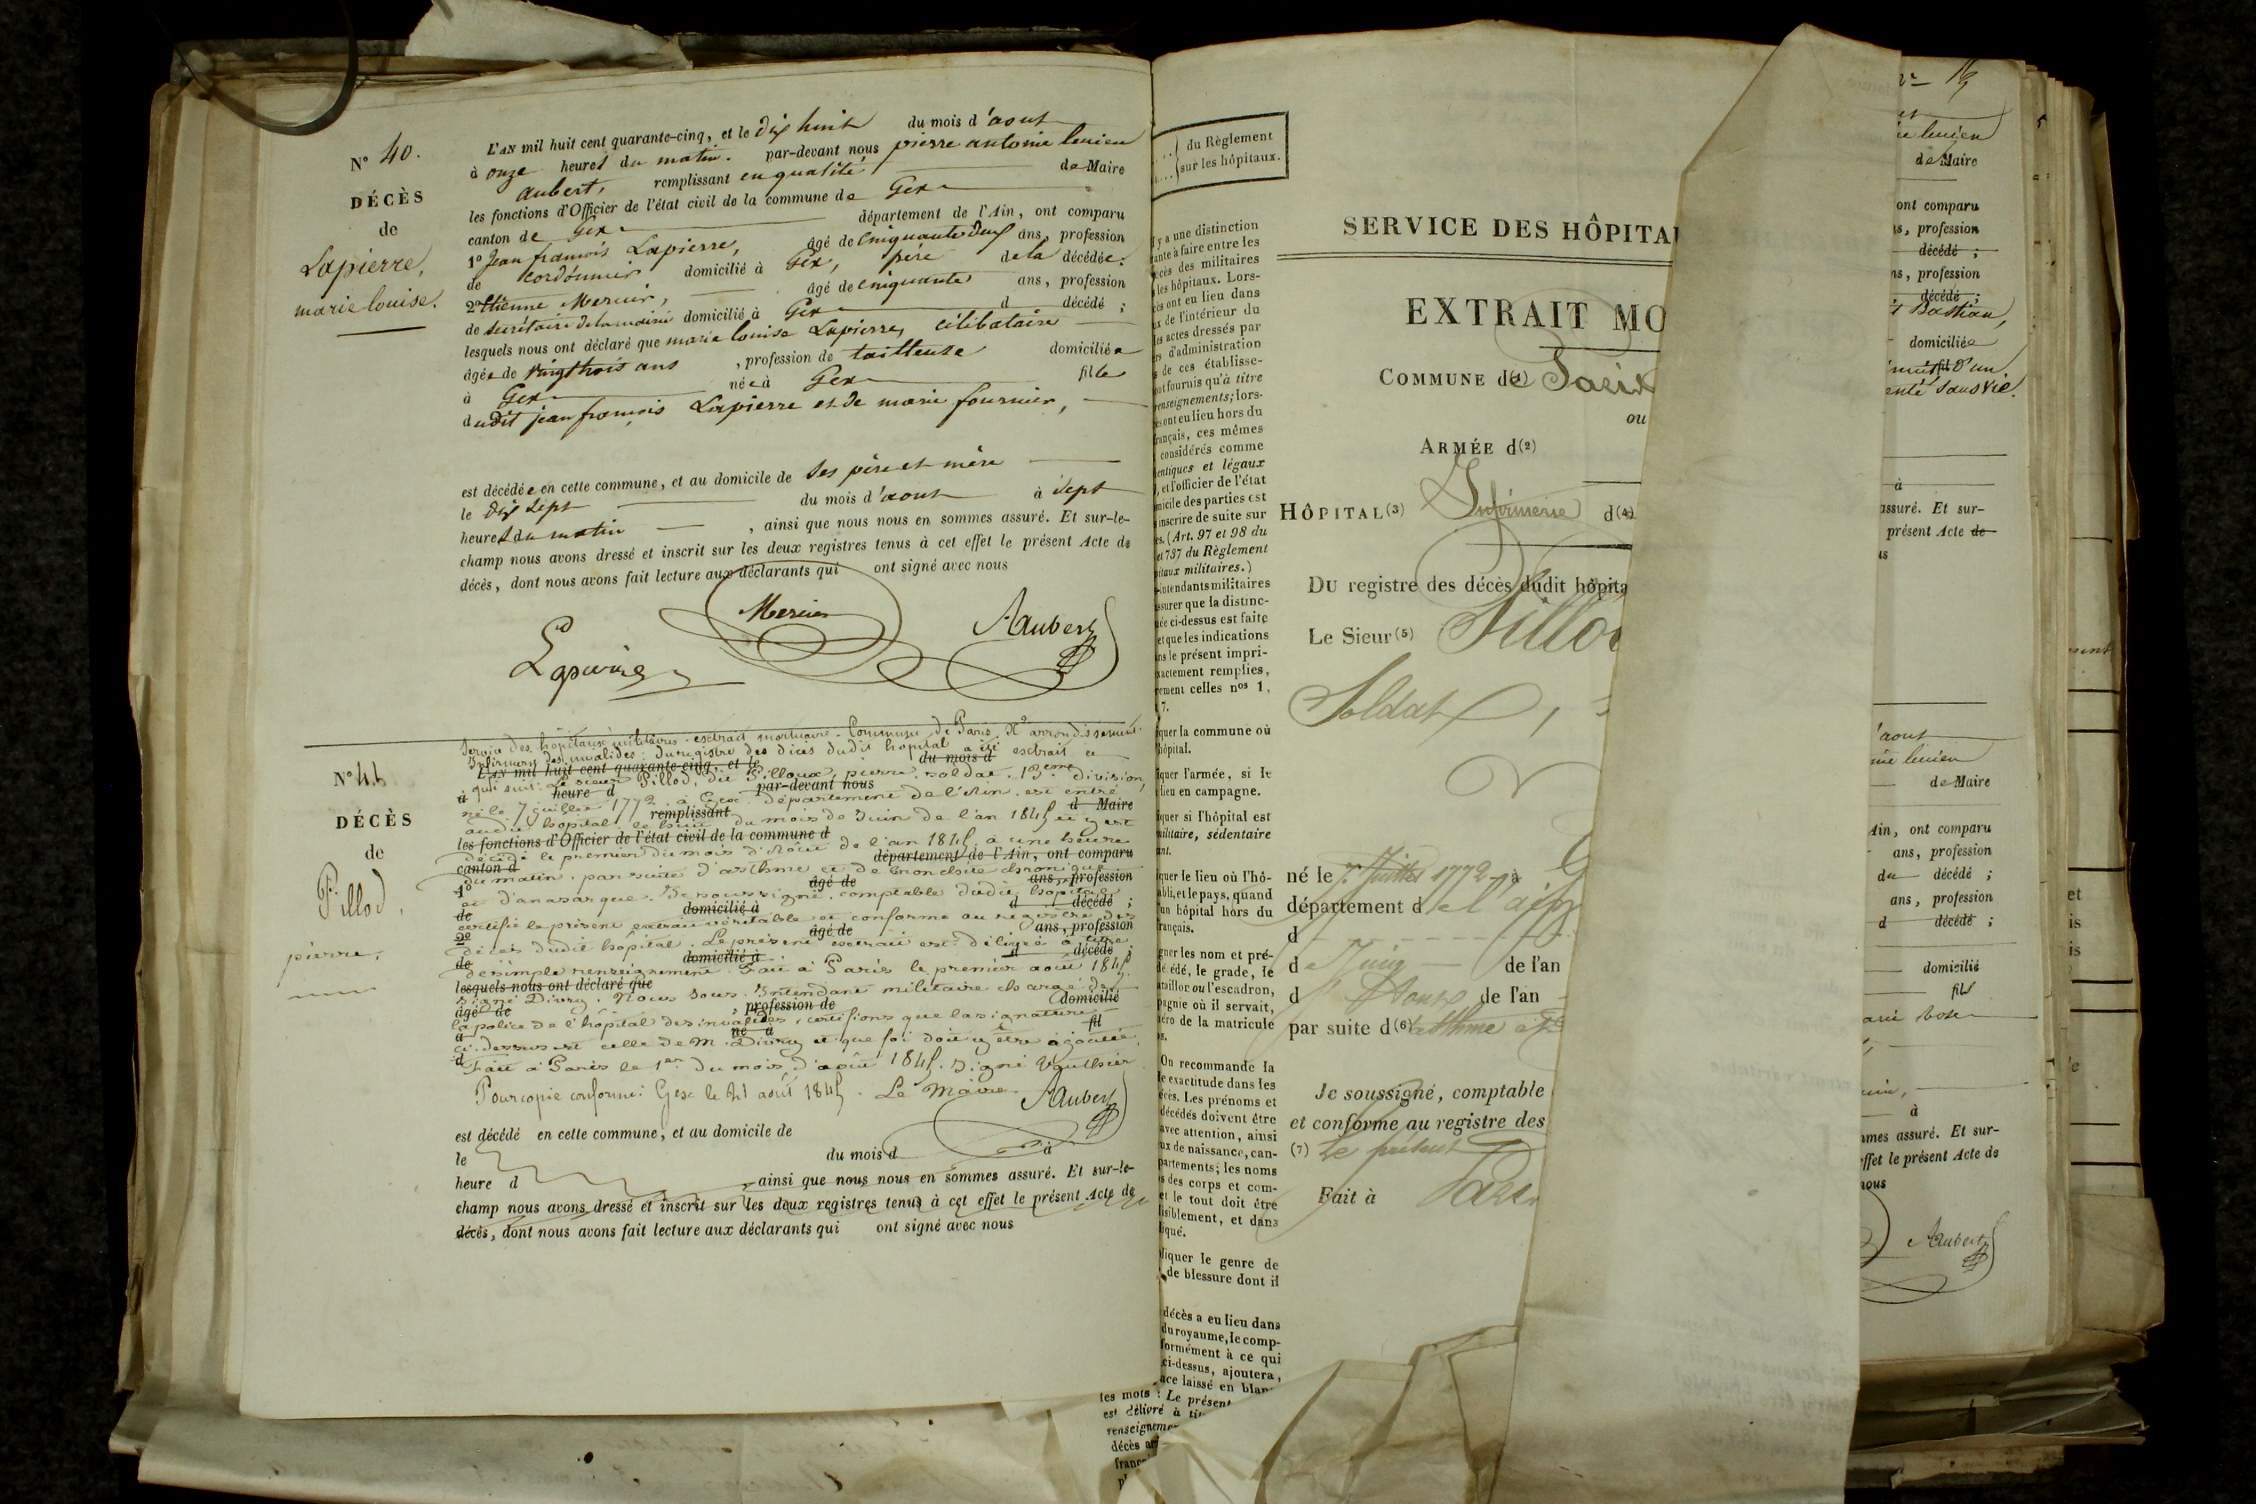 N° 40.
DÉCÈS
de
Lapierre,
marie louise.
L'AN mil huit cent quarante-cinq, et le dix huit du mois d'aout
à onze heures du matin. par-devant nous pierre antoine lucien
aubert, remplissant en qualité de Maire
les fonctions d'Officier de l'état civil de la commune de Gex
canton de Gex département de l'Ain, ont comparu
1° Jean françois Lapierre, âgé de cinquante deux ans, profession
de cordonnier domicilié à Gex, père de la décédée;
2° Etienne Mercier, âgé de cinquante ans, profession
de secrétaire de la mairie domicilié à Gex d décédé ;
lesquels nous ont déclaré que marie louise Lapierre, célibataire
âgée de vingt trois ans , profession de tailleuse domiciliée
à Gex née à Gex fille
dudit jean françois Lapierre et de marie fournier,
est décédée en cette commune, et au domicile de ses père et mère
le dix sept du mois d'aout à sept
heures du matin , ainsi que nous nous en sommes assuré. Et sur-le-
champ nous avons dressé et inscrit sur les deux registres tenus à cet effet le présent Acte de
décès, dont nous avons fait lecture aux déclarants qui ont signé avec nous
Mercier
Aubert
Lapierre
N° 41
DÉCÈS
de
Pillod,
pierre.
Service des hôpitaux militaires. extrait mortuaire. Commune de Paris X° arrondissement.
Infirmerie des invalides. du registre des décès dudit hopital a été extrait ce
L'AN mil huit cent quarante-cinq, et le du mois d
qui suit: Le sieur Pillod, dit Pilloux, pierre, soldat. 13eme division,
à heure d par-devant nous
né le 7 juillet 1772 à Gex département de l'Ain, est entré
remplissant d Maire
audit hopital le huit du mois de Juin de l'an 1845 et y est
les fonctions d'Officier de l'état civil de la commune d
décédé le premier du mois d'Août de l'an 1845, à une heure
canton d département de l'Ain, ont comparu
du matin. par suite d'asthme et de bronchite chronique
1° âgé de ans, profession
et d'anasarque. Je soussigné, comptable dudit hopital
de domicilié à d décédé ;
certifie le présent extrait véritable et conforme au registre des
2° âgé de ans, profession
décès dudit hôpital. Le présent extrait est délivré à titre
de domicilié à d décédé ;
de simple renseignement. Fait à Paris le premier août 1845
lesquels nous ont déclaré que
signé Divry. Nous Sous-Intendant militaire chargé de
âgé de , profession de domicilié
la police de l'hôpital des invalides, certifions que la signature
à né à fil
ci-dessus est celle de M. Divry et que foi doit y être ajoutée.
d
Fait à Paris le 1er du mois d'août 1845. Signé Vauthier
Pour copie conforme: Gex le 21 août 1845. Le Maire
Aubert
est décédé en cette commune, et au domicile de
le du mois d à
heure d , ainsi que nous nous en sommes assuré. Et sur-le-
champ nous avons dressé et inscrit sur les deux registres tenus à cet effet le présent Acte de
décès, dont nous avons fait lecture aux déclarants qui ont signé avec nous
du Règlement
sur les hôpitaux.
y a une distinction
ante à faire entre les
cès des militaires
les hôpitaux. Lors-
ès ont eu lieu dans
x de l'intérieur du
les actes dressés par
rs d'administration
s de ces établisse-
nt fournis qu'à titre
enseignements; lors-
ès ont eu lieu hors du
rançais, ces mêmes
considérés comme
entiques et légaux
, et l'officier de l'état
micile des parties est
inscrire de suite sur
es. (Art. 97 et 98 du
et 737 du Règlement
itaux militaires.)
-intendants militaires
ssurer que la distinc-
uée ci-dessus est faite
et que les indications
ns le présent impri-
xactement remplies,
rement celles nos 1,
7.
quer la commune où
hôpital.
quer l'armée, si le
lieu en campagne.
quer si l'hôpital est
militaire, sédentaire
ant.
quer le lieu où l'hô-
abli, et le pays, quand
un hôpital hors du
français.
quer les nom et pré-
décédé, le grade, le
ataillon ou l'escadron,
pagnie où il servait,
éro de la matricule
s.
On recommande la
e exactitude dans les
écès. Les prénoms et
décédés doivent être
avec attention, ainsi
ux de naissance, can-
partements; les noms
s des corps et com-
et le tout doit être
isiblement, et dans
iqué.
iquer le genre de
de blessure dont il
décès a eu lieu dans
du royaume, le comp-
formément à ce qui
ci-dessus, ajoutera,
ace laissé en blanc
les mots : Le présent
est délivré à tit
renseigneme
décès ar
franç
SERVICE DES HÔPITA
EXTRAIT MO
COMMUNE de (1) Paris
ou
ARMÉE d (2)
HÔPITAL (3) Infirmerie d (4)
DU registre des décès dudit hôpita
Le Sieur (5) Pillo
Soldat
né le 7 Juillet 1772 à G
département de l'ain
d
de Juin de l'an
d'Aout de l'an
par suite d (6) asthme et
Je soussigné, comptable
et conforme au registre des
(7) Le présent
Fait à Paris
lucien
de Maire
ont comparu
s, profession
décédé ;
ns, profession
décédé ;
Bastian,
domiciliée
d'un
enté sans vie.
à
assuré. Et sur-
présent Acte de
us
'aout
lucien
de Maire
Ain, ont comparu
ans, profession
du décédé ;
ans, profession
d décédé ;
domicilié
fils
à
mmes assuré. Et sur-
effet le présent Acte de
nous
Aubert
et
is
is